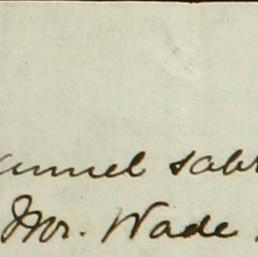 annel sabr
Mr. Wade